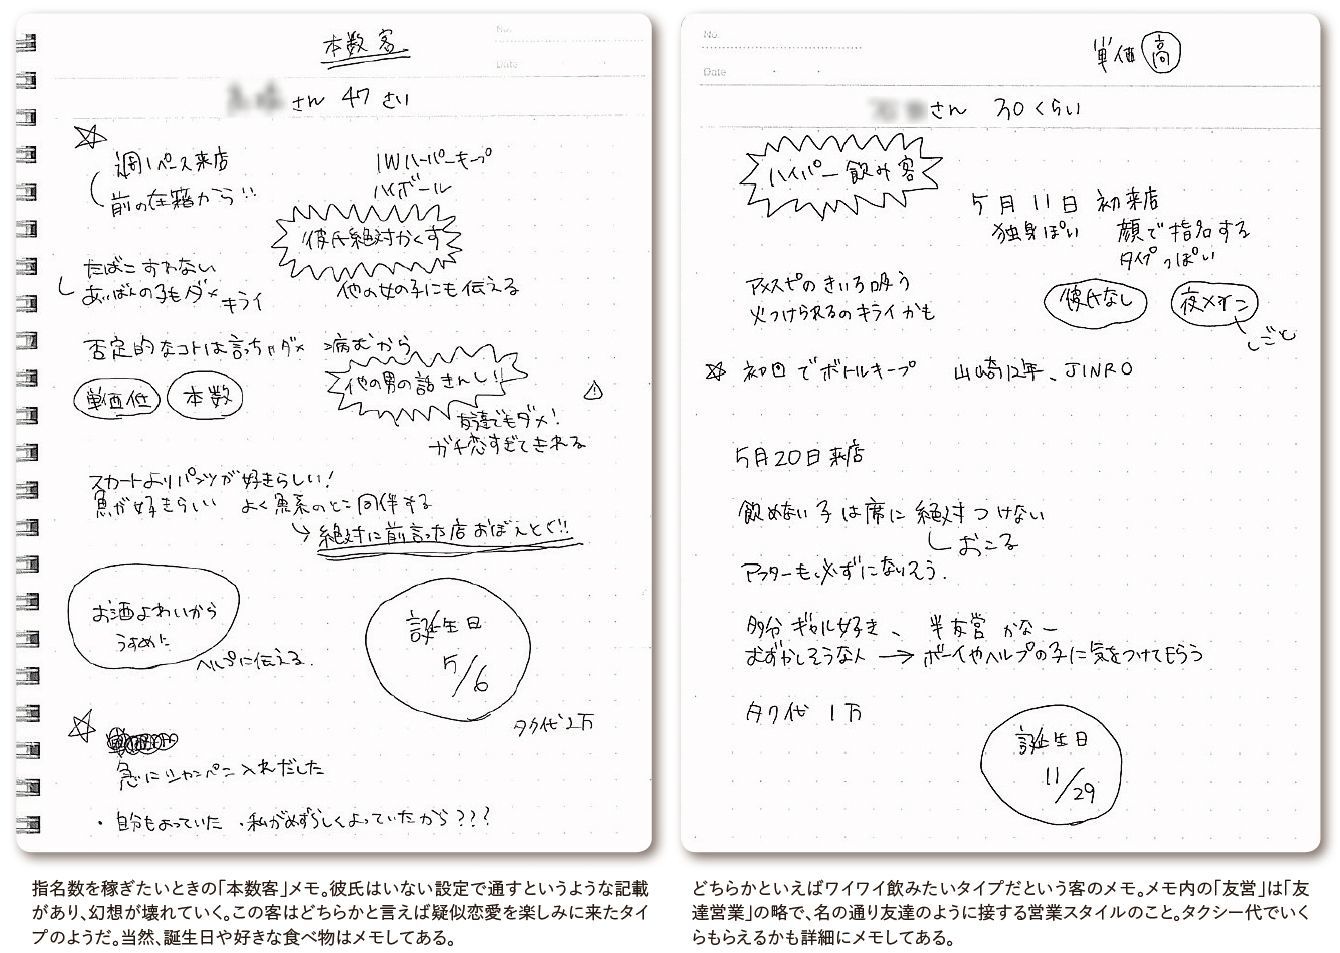 本数客
No.
Date
さん 47 さい
週1ペース来店
前の在籍から!!
IWハーパーキープ
ハイボール
彼氏絶対かくす
他の女の子にも伝える
たばこすわない
あいばんの子もダメ キライ
否定的なコトは言っちゃダメ →病むから
単価低 本数
他の男の話きんし!
友達でもダメ!
ガチ恋すぎてきれる
スカートよりパンツが好きらしい!
魚が好きらしい よく魚系のとこ同伴する
→絶対に前言った店おぼえとく!!
お酒よわいから
うすめに
ヘルプに伝える
誕生日
5/6
タク代2万
急にシャンパン入れだした
・自分もよっていた ・私がめずらしくよっていたから???
指名数を稼ぎたいときの「本数客」メモ。彼氏はいない設定で通すというような記載
があり、幻想が壊れていく。この客はどちらかと言えば疑似恋愛を楽しみに来たタイ
プのようだ。当然、誕生日や好きな食べ物はメモしてある。
No.
Date
単価 高
さん 30くらい
ハイパー飲み客
5月11日 初来店
独身ぽい 顔で指名する
タイプっぽい
アメスピのきいろ吸う
火つけられるのキライかも
彼氏なし
しごと
☆ 初回でボトルキープ 山崎12年、JINRO
5月20日来店
飲めない子は席に絶対つけない
おこる
アフターも必ずにないそう.
多分ギャル好き、半友営かなー
むずかしそうな人 → ボーイやヘルプの子に気をつけてもらう
タク代 1万
誕生日
11/29
どちらかといえばワイワイ飲みたいタイプだという客のメモ。メモ内の「友営」は「友
達営業」の略で、名の通り友達のように接する営業スタイルのこと。タクシー代でいく
らもらえるかも詳細にメモしてある。